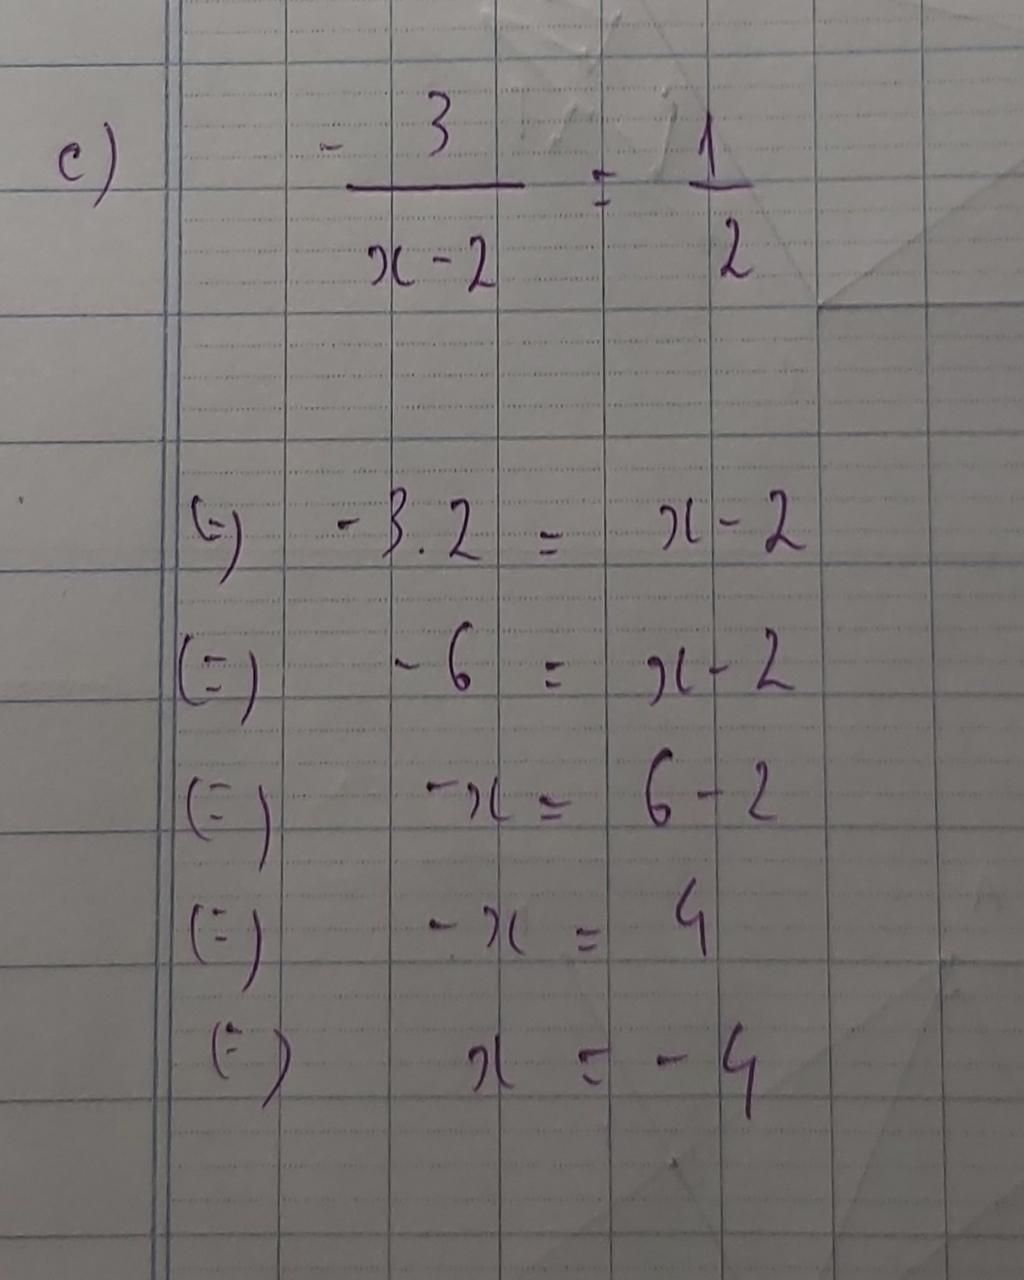 c) - 3/(x-2) = 1/2
(=) -3.2 = x-2
(=) -6 = x-2
(=) -x = 6-2
(=) -x = 4
(=) x = -4